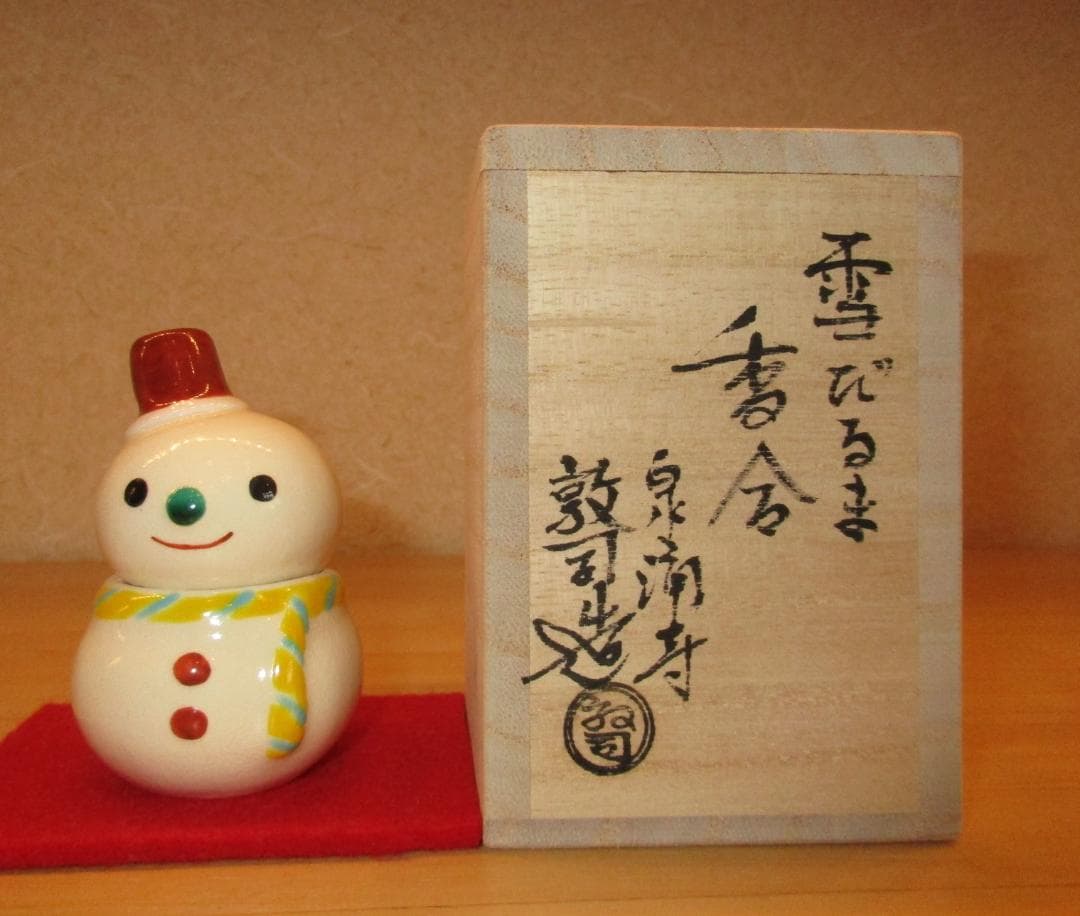 雪だるま
香合
泉涌寺
敦司造
敦司